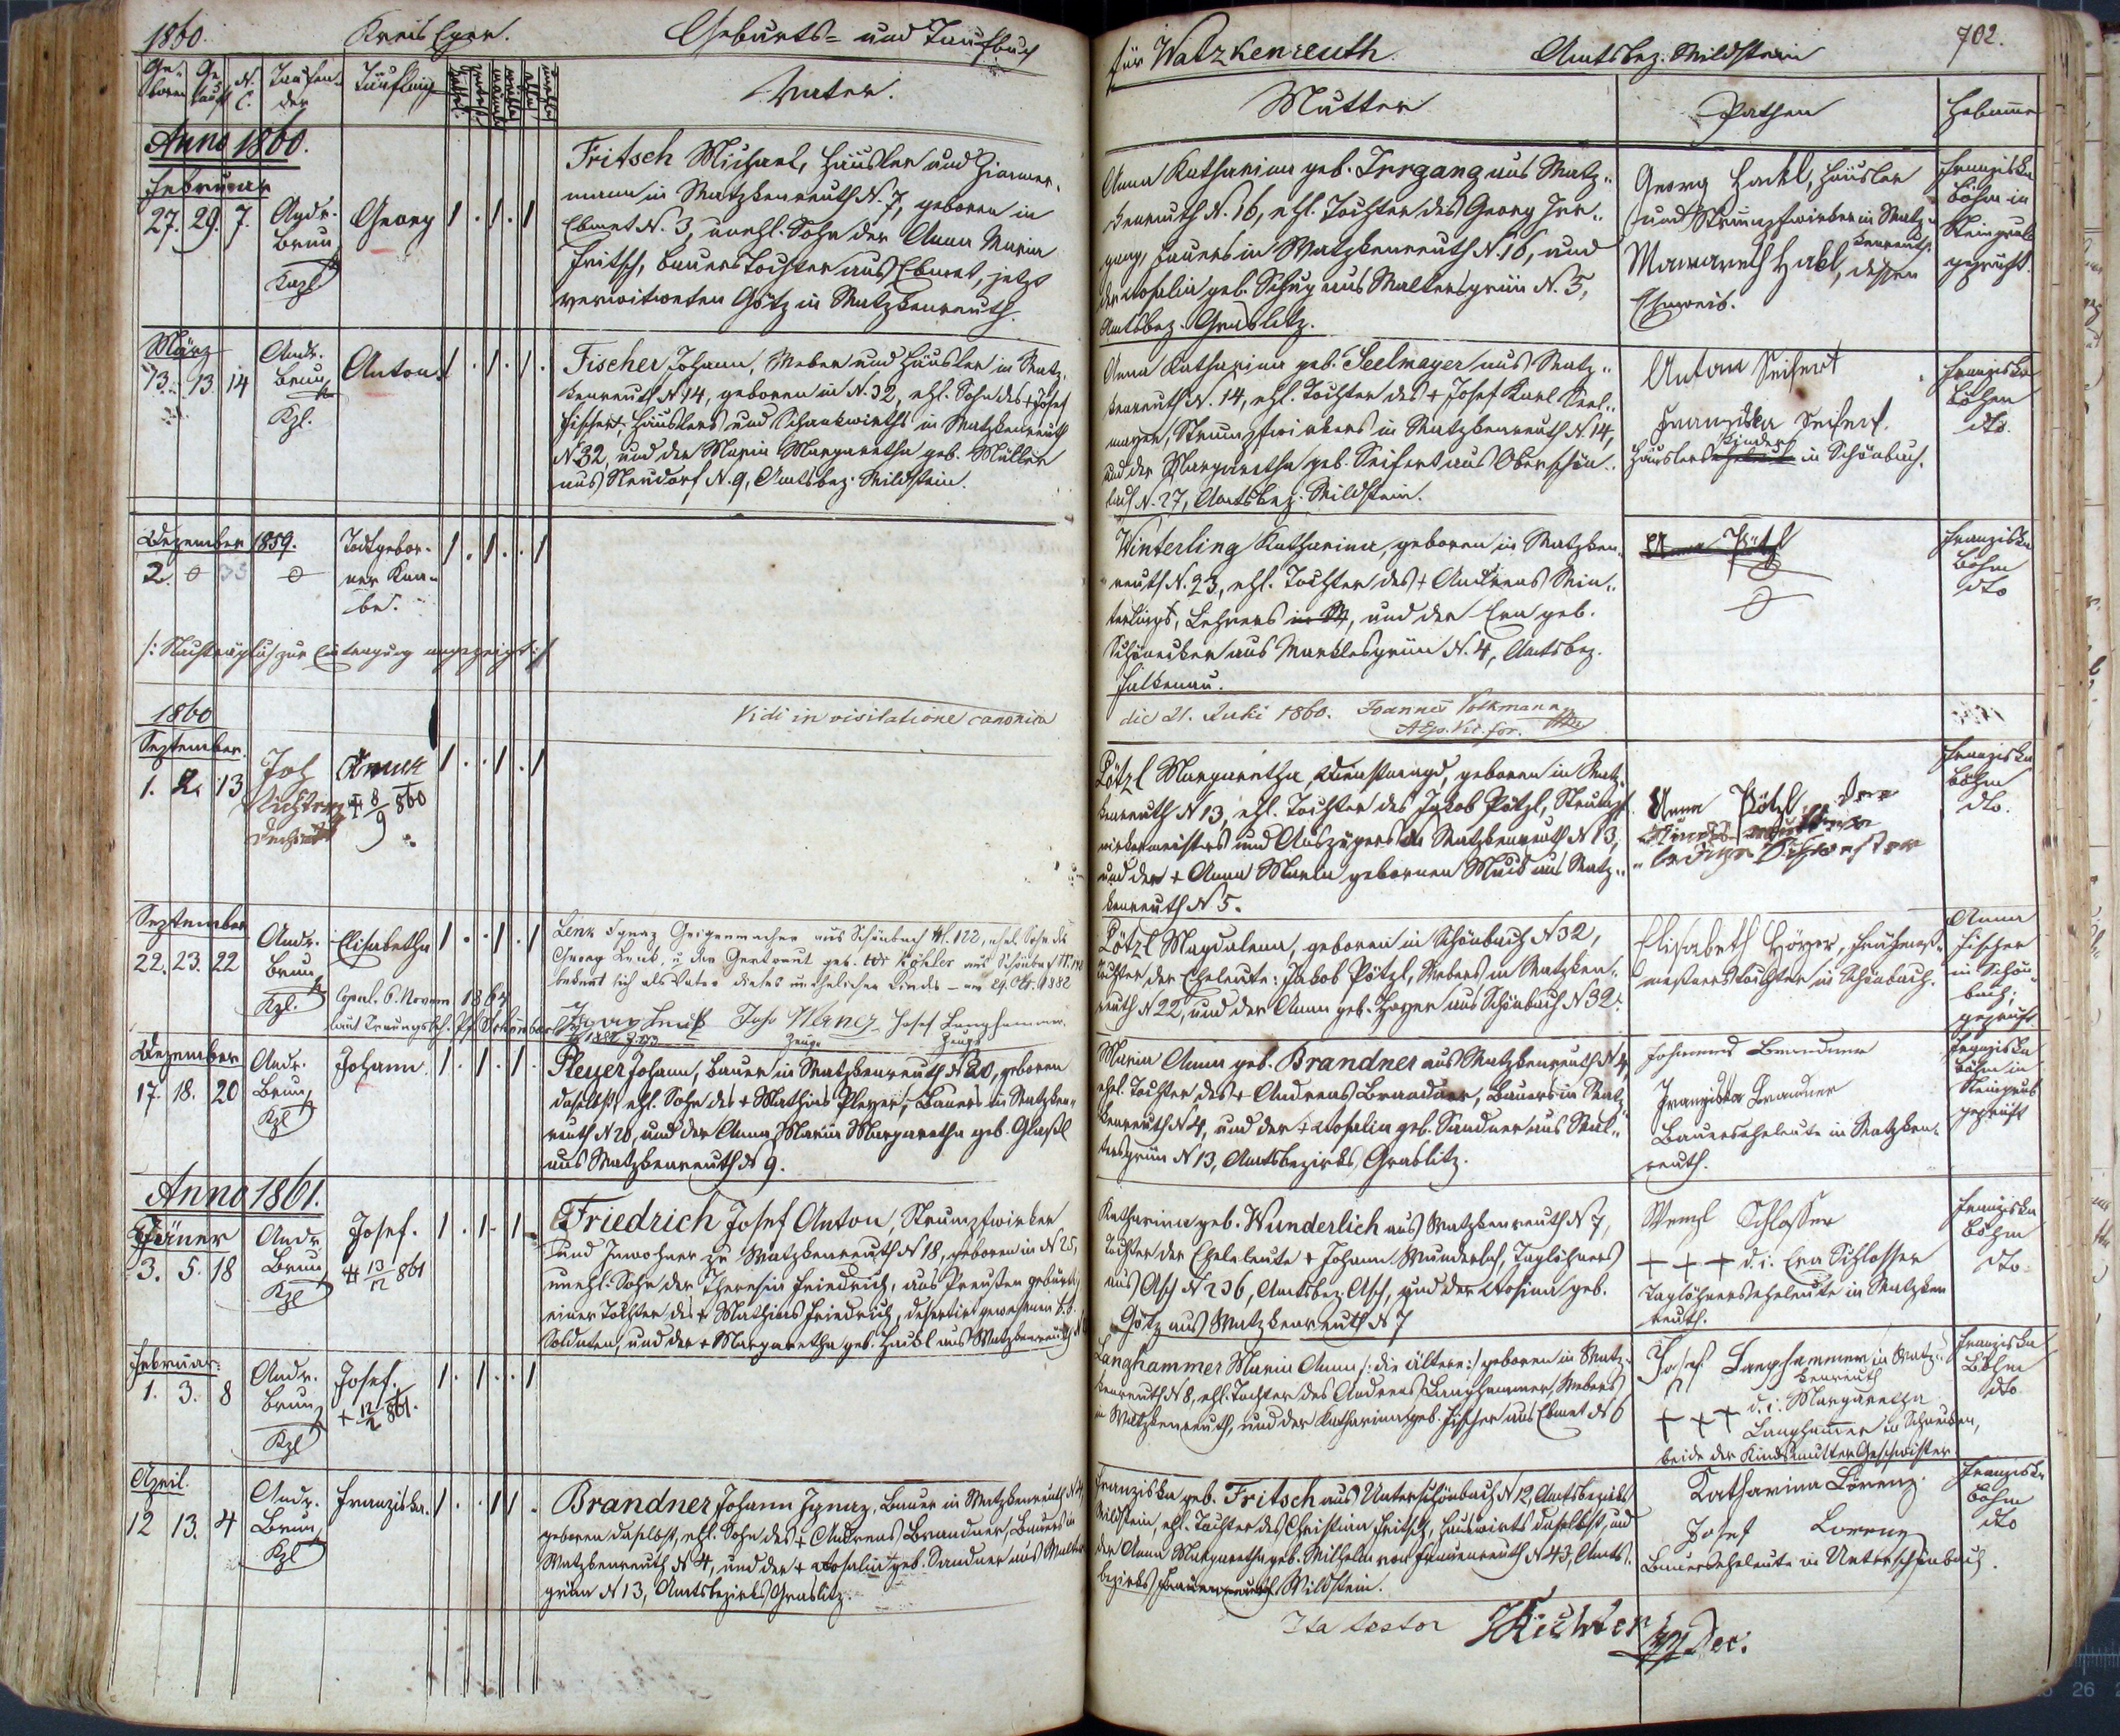 1860. Kreis Eger. Geburts- und Taufbuch
für Watzkenreuth. Amtsbez. Wildstein 702.
Ge- boren Ge- tauft N. C. Taufen- der Täufling Vater.
Mutter Pathen Hebamme
Anno 1860.
Februar
27. 29. 7. Andr. Brun Kapl Georg 1 . 1 . 1
Fritsch Michael, Häusler und Zimmer-
mann in Watzkenreuth N. 7, geboren in
Ebmet N. 3, unehl. Sohn der Anna Maria
Fritsch, Bauers Tochter aus Ebmet, jetzt
verwitweten Götz in Watzkenreuth.
Anna Katharina geb. Irrgang aus Watz-
kenreuth N. 16, ehl. Tochter des Georg Irr-
gang, Bauers in Watzkenreuth N. 16, und
der Rosalia geb. Schug aus Waltersgrün N. 3,
Amtsbez. Graslitz.
Georg Hackl, Häusler
und Strumpfwirker in Watz-
kenreuth.
Margareth Hakl, dessen
Eheweib.
Franziska
Böhm in
Steingrub
geprüft.
März
13. 13. 14 Andr. Brun Kpl. Anton. 1 . 1 . 1 .
Fischer Johann, Weber und Häusler in Watz-
kenreuth N 14, geboren in N. 32, ehl. Sohn des + Josef
Fischer Häuslers und Schankwirths in Watzkenreuth
N 32 und der Maria Margaretha geb. Müller
aus Neudorf N. 9, Amtsbez. Wildstein.
Anna Katharina geb. Seelmayer aus Watz-
kenreuth N. 14, ehl. Tochter des + Josef Karl Seel-
mayer, Strumpfwirkers in Watzkenreuth N. 14,
und der Margaretha geb. Seifert aus Oberschön-
bach N. 27, Amtsbez. Wildstein.
Anton Seifert
Franziska Seifert.
Häuslers Kinder in Schönbach.
Franziska
Böhm
dto.
Dezember 1859.
2. Todtgebor-
ner Kna-
be. 1 . 1 . . 1
/: Nachträglich zur Eintragung angezeigt :/
Winterling Katharina, geboren in Watzken-
reuth N. 23, ehl. Tochter des + Andreas Win-
terlings, Lehrers in W, und der Eva geb.
Schönecker aus Marklesgrün N. 4, Amtsbez.
Falkenau.
Anna Pötzl
Franziska
Böhm
dto
Vidi in visitatione canonica
die 21. Juli 1860. Joannes Volkmann
Vic. for.
1860
September.
1. 2. 13 Joh Richter Dechant Anna + 8/9 860 1 . . 1 . 1
Pötzl Margaretha, Dienstmagd, geboren in Watz-
kenreuth N 13, ehl. Tochter des Jakob Pötzl, Strumpf-
wirkermeisters und Auszügers in Watzkenreuth N 13,
und der + Anna Maria gebornen Muck aus Watz-
kenreuth N 5.
Anna Pötzl, der
Kindsmutter
ledige Schwester
Franziska
Böhm
dto.
September
22. 23. 22 Andr. Brun Kpl. Elisabetha 1 . . 1 . 1
Copul. 6. Novem 1864
laut Trauungssch. Pf. Schönbach
Lenk Ignaz Geigenmacher aus Schönbach N. 122, ehel. Sohn des
Georg Lenk, u. der Gertraut geb. Köhler aus Schönbach
bekennt sich als Vater dieses unehelichen Kindes - am 29. Okt. 1882
Ignaz Lenk Joh. Josef Langhammer.
Zeuge Zeuge
Pötzl Magdalena, geboren in Schönbach N 32,
Tochter der Eheleute: Jakob Pötzl, Webers in Watzken-
reuth N 22, und der Anna geb. Hoyer aus Schönbach N 32.
Elisabeth Hoyer,
meisters Tochter in Schönbach.
Anna
Fischer
in Schön-
bach,
geprüft
Dezember
17. 18. 20 Andr. Brun Kpl Johann. 1 . 1 . 1 .
Pleyer Johann, Bauer in Watzkenreuth N 20, geboren
daselbst, ehl. Sohn des + Mathias Pleyer, Bauers in Watzken-
reuth N 20, und der Anna Maria Margaretha geb. Glaßl
aus Watzkenreuth N 9.
Maria Anna geb. Brandner aus Watzkenreuth N 4,
ehl. Tochter des + Andreas Brandner, Bauers in Watz-
kenreuth N 4, und der + Rosalia geb. Sandner aus Wal-
tersgrün N 13, Amtsbezirks Graslitz.
Johannes Brandner
Franziska Brandner
Bauerseheleute in Watzken-
reuth.
Franziska
Böhm in
Steingrub
geprüft
Anno 1861.
Jäner
3. 5. 18 Andr Brun Kpl Josef. + 13/12 861 1 . 1 . 1 .
Friedrich Josef Anton, Strumpfwirker
und Inwohner zu Watzkenreuth N 18, geboren in N 25,
unehl. Sohn der Theresia Friedrich, aus Preußen gebürtig,
einer Tochter des + Mathias Friedrich, desertirt gewesenen k.k.
Soldaten, und der + Margaretha geb. Hackl aus Watzkenreuth
Katharina geb. Wunderlich aus Watzkenreuth N 7,
Tochter der Eheleute + Johann Wunderlich, Taglöhners
aus Asch N 236, Amtsbez. Asch, und der Rosina geb.
Götz aus Watzkenreuth N 7
Wenzl Schlosser
+ + + d. i. Eva Schlosser
Taglöhnerseheleute in Watzken
reuth.
Franziska
Böhm
dto.
Februar.
1. 3. 8 Andr. Brun Kpl Josef. + 12/2 861. 1 . 1 . . 1
Langhammer Maria Anna /: die ältere :/ geboren in Watz-
kenreuth N 8, ehl. Tochter des Andreas Langhammer, Webers
in Watzkenreuth, und der Katharina geb. Fischer aus Ebmet N 6
Josef Langhammer in Watz-
kenreuth
+ + + d. i. Margaretha
Langhammer in
beide der Kindsmutter Geschwister.
Franziska
Böhm
dto
April.
12 13. 4 Andr. Brun Kpl Franziska. 1 . . 1 1 .
Brandner Johann Ignaz, Bauer in Watzkenreuth N 4,
geboren daselbst, ehl. Sohn des + Andreas Brandner, Bauers in
Watzkenreuth N 4, und der + Rosalia geb. Sandner aus Walters
grün N 13, Amtsbezirks Graslitz.
Franziska geb. Fritsch aus Unterschönbach N 12, Amtsbezirks
Wildstein, ehl. Tochter des Christian Fritsch, Hauswirts daselbst, und
der Anna Margaretha geb. Wilhelm von Frauenreuth N 43, Amts-
bezirks Frauenreuth Wildstein.
Katharina Lorenz.
Josef Lorenz
Bauerseheleute in Unterschönbach.
Franziska
Böhm
dto
Ita testor JRichter
Dec.
26